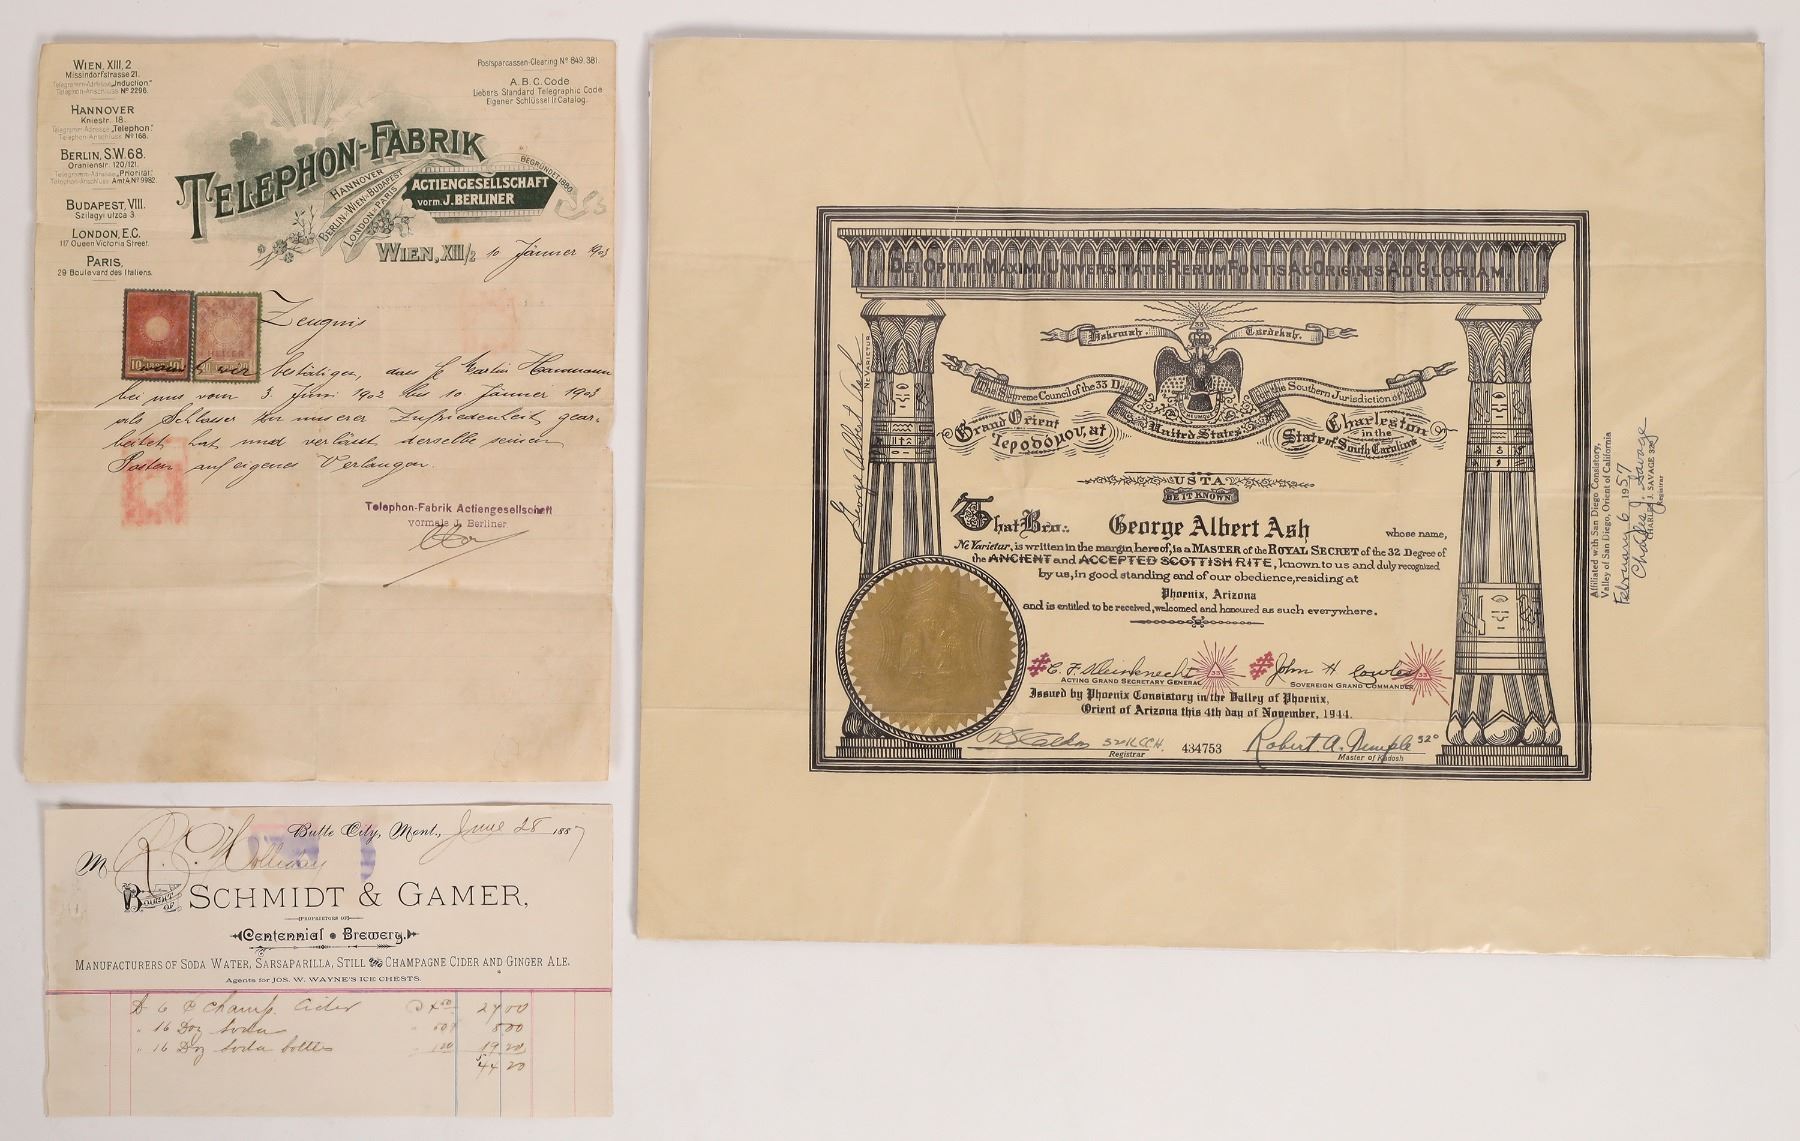 WIEN, XIII, 2
Missindorfstrasse 21.
Telegramm-Adresse „Induction“
Telephon-Anschluss Nº 2296.
HANNOVER
Kniestr. 18.
Telegramm-Adresse „Telephon“
Telephon-Anschluss Nº 168.
BERLIN, S.W. 68.
Oranienstr. 120/121.
Telegramm-Adresse „Priorität“
Telephon-Anschluss Amt A. Nº 9982.
BUDAPEST, VIII.
Szilagyi utzca 3
LONDON, E.C.
117 Queen Victoria Street.
PARIS,
29 Boulevard des Italiens.
Postsparcassen-Clearing Nº 849.381.
A.B.C. Code
Liebers Standard Telegraphic Code
Eigener Schlüssel lt Catalog.
TELEPHON-FABRIK
ACTIENGESELLSCHAFT
vorm. J. BERLINER
BEGRÜNDET 1880
HANNOVER
BERLIN-WIEN-BUDAPEST
LONDON-PARIS
WIEN, XIII/2 10 Jänner 1903
Zeugnis
bestätigen, dass
bei uns vom 3 Juni 1902 bis 10 Jänner 1903
als Schlosser zur unserer Zufriedenheit gear-
beitet hat und verlässt derselbe seinen
Posten auf eigenes Verlangen.
Telephon-Fabrik Actiengesellschaft
vormals J. Berliner
Butte City, Mont., June 28 1887
M R. C. Holliday
BOUGHT OF SCHMIDT & GAMER,
(PROPRIETORS OF)
Centennial Brewery.
MANUFACTURERS OF SODA WATER, SARSAPARILLA, STILL & CHAMPAGNE CIDER AND GINGER ALE.
Agents for JOS. W. WAYNE'S ICE CHESTS.
6 Champ. Cider 4 00 24 00
" 16 Doz Soda 50 8 00
" 16 Doz Soda bottles
44 20
DEI OPTIMI MAXIMI UNIVERSITATIS RERUM FONTIS AC ORIGINIS AD GLORIAM.
Hakemah. Tsedekah.
33
Supreme Council of the 33 D the Southern Jurisdiction of the
United States
Grand Orient
Charleston
in the
State of South Carolina
USTA
BE IT KNOWN
That Bro∴ George Albert Ash whose name,
Ne Varietur, is written in the margin hereof, is a MASTER of the ROYAL SECRET of the 32 Degree of
the ANCIENT and ACCEPTED SCOTTISH RITE, known to us and duly recognized
by us, in good standing and of our obedience, residing at
Phoenix, Arizona
and is entitled to be received, welcomed and honoured as such everywhere.
C. F. Kleinknecht 33 John H Cowles 33
ACTING GRAND SECRETARY GENERAL SOVEREIGN GRAND COMMANDER
Issued by Phoenix Consistory in the Valley of Phoenix,
Orient of Arizona this 4th day of November, 1944.
434753 Robert A. 32°
Registrar Master of Kadosh
George Albert Ash
NE VARIETUR
Affiliated with San Diego Consistory,
Valley of San Diego, Orient of California
February 6 1957
Charles J. Savage
CHARLES J. SAVAGE 33°
Registrar